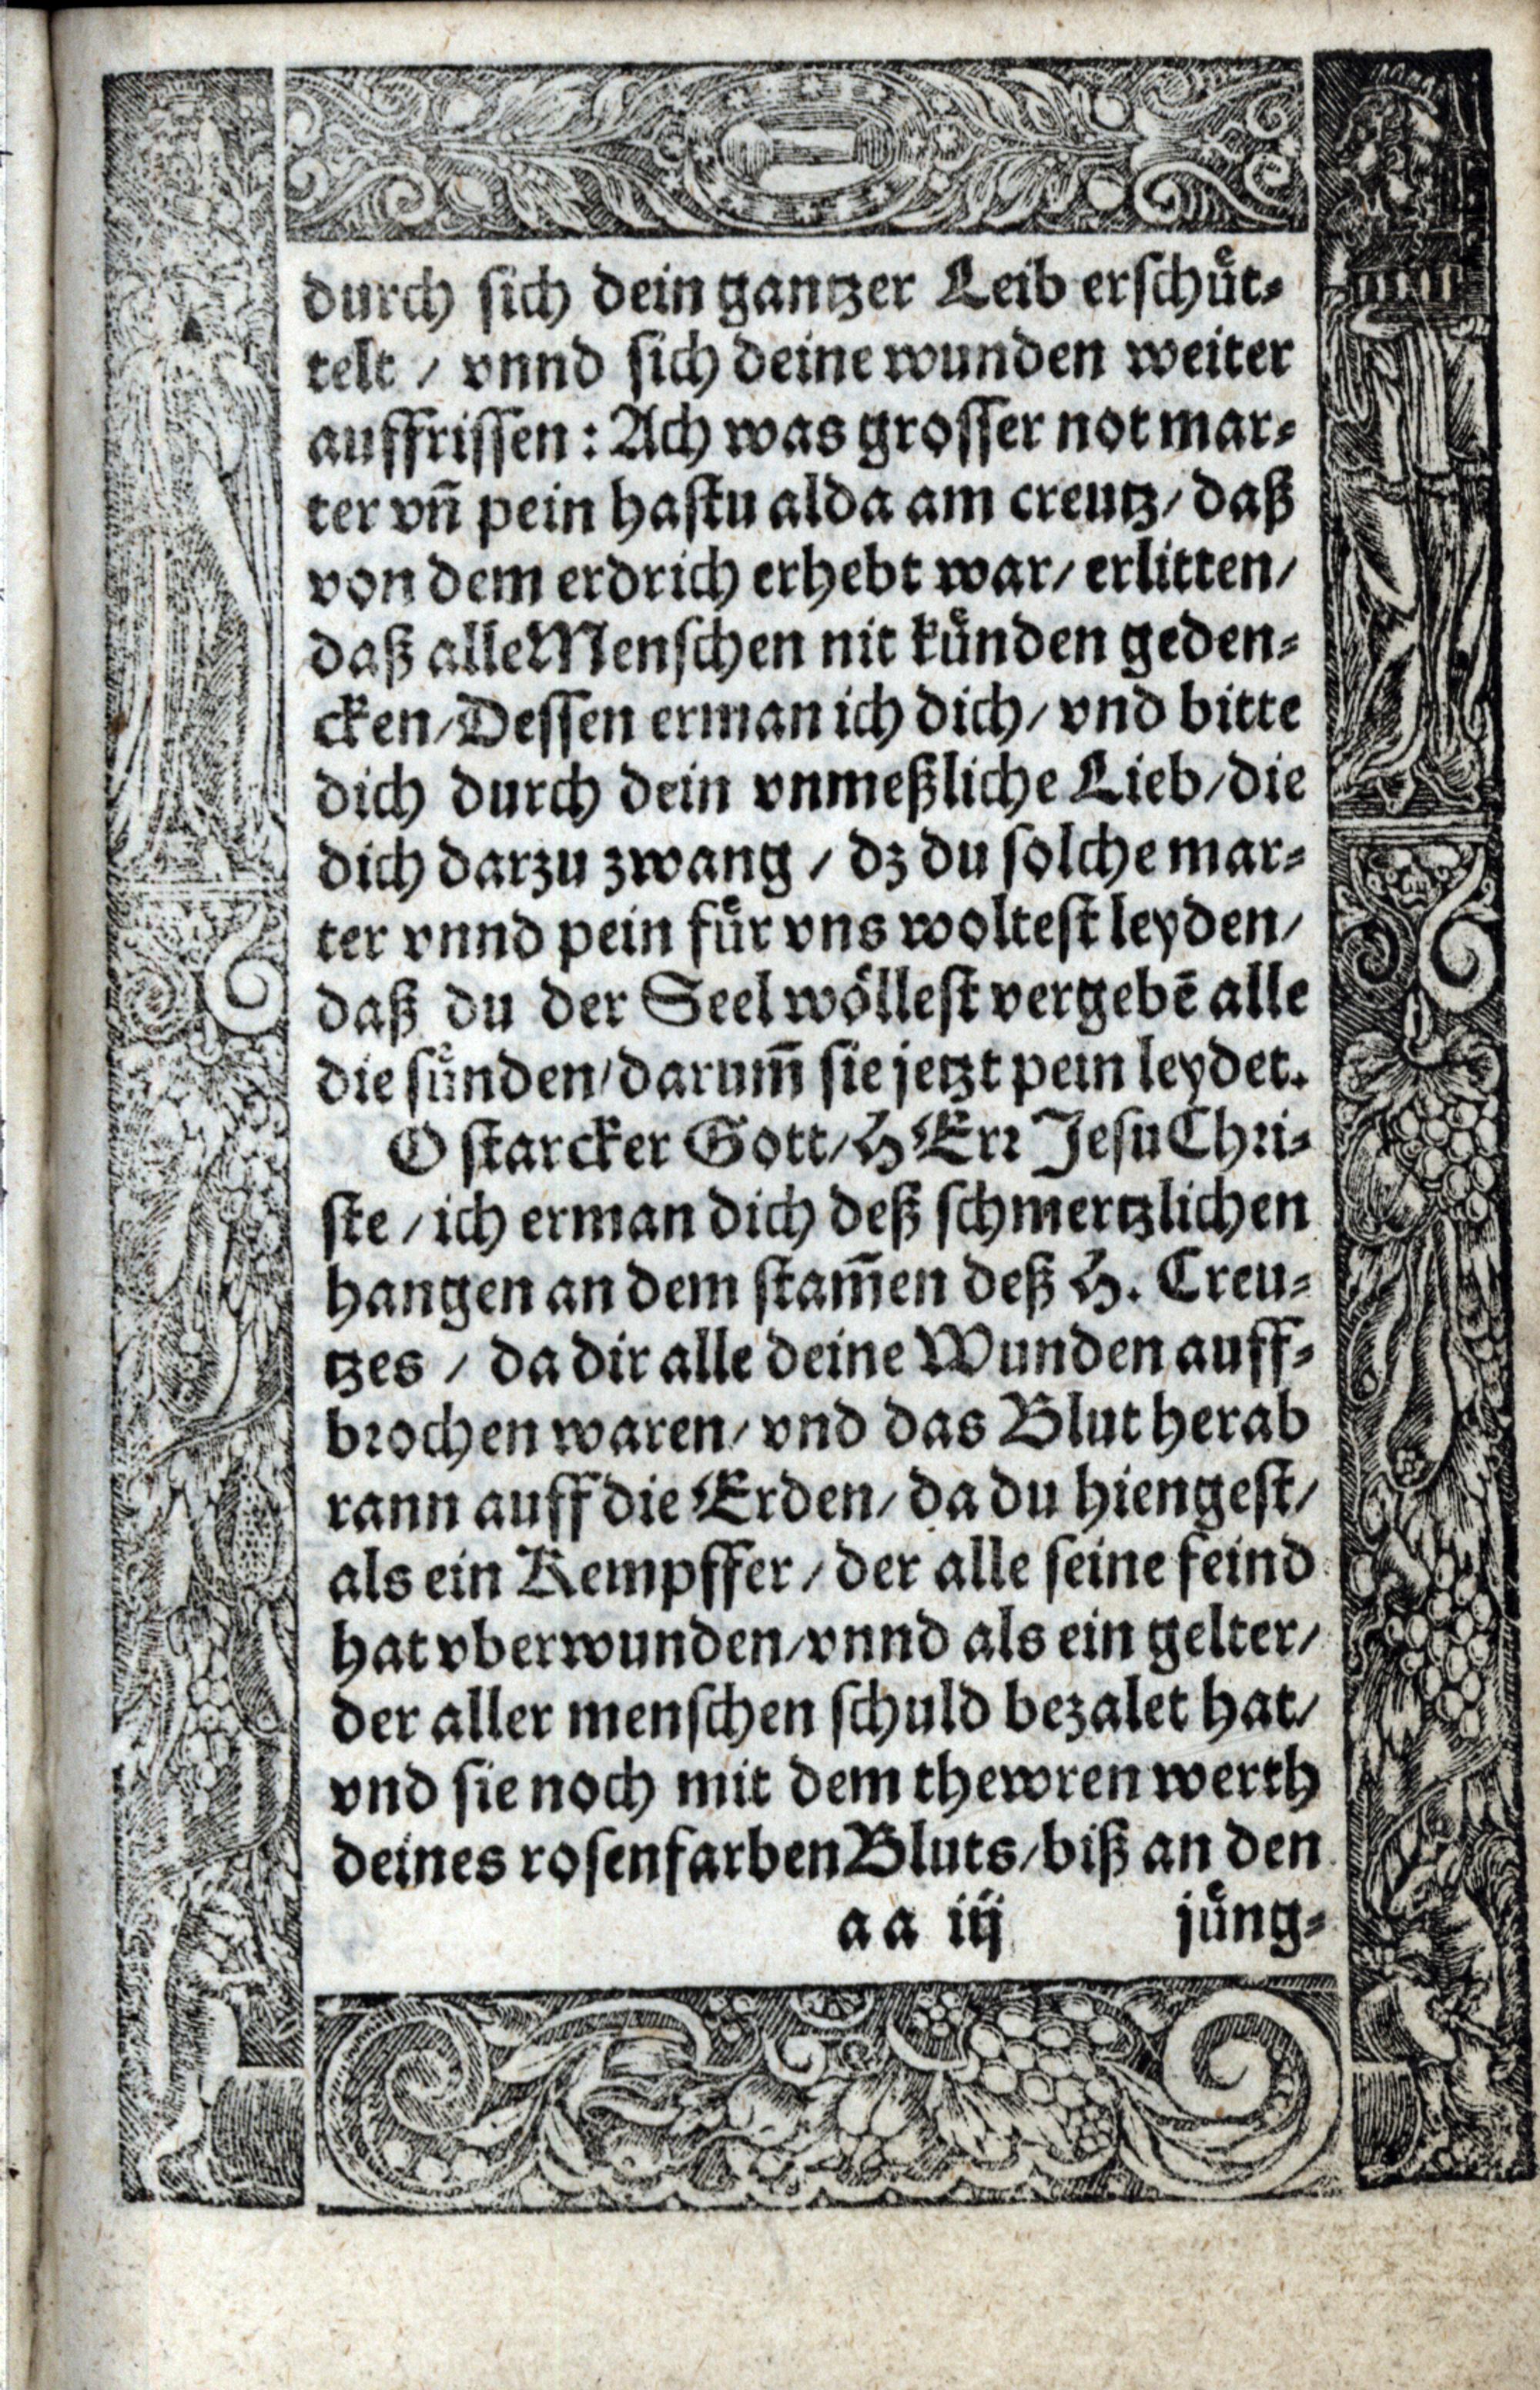 durch sich dein gantzer Leib erschuͤt-
telt / vnnd sich deine wunden weiter
auffrissen: Ach was grosser not mar-
ter vñ pein hastu alda am creutz/ daß
von dem erdrich erhebt war/ erlitten/
daß alle Menschen nit kuͤnden geden-
cken/ Dessen erman ich dich/ vnd bitte
dich durch dein vnmeßliche Lieb/ die
dich darzu zwang / dz du solche mar-
ter vnnd pein fuͤr vns woltest leyden/
daß du der Seel woͤllest vergebẽ alle
die suͤnden/ darum̃ sie jetzt pein leydet.
O starcker Gott/ HErr Jesu Chri-
ste / ich erman dich deß schmertzlichen
hangen an dem stam̃en deß H. Creu-
tzes / da dir alle deine Wunden auff-
brochen waren/ vnd das Blut herab
rann auff die Erden/ da du hiengest/
als ein Kempffer / der alle seine feind
hat vberwunden/ vnnd als ein gelter/
der aller menschen schuld bezalet hat/
vnd sie noch mit dem thewren werth
deines rosenfarben Bluts/ biß an den
aa iij juͤng-